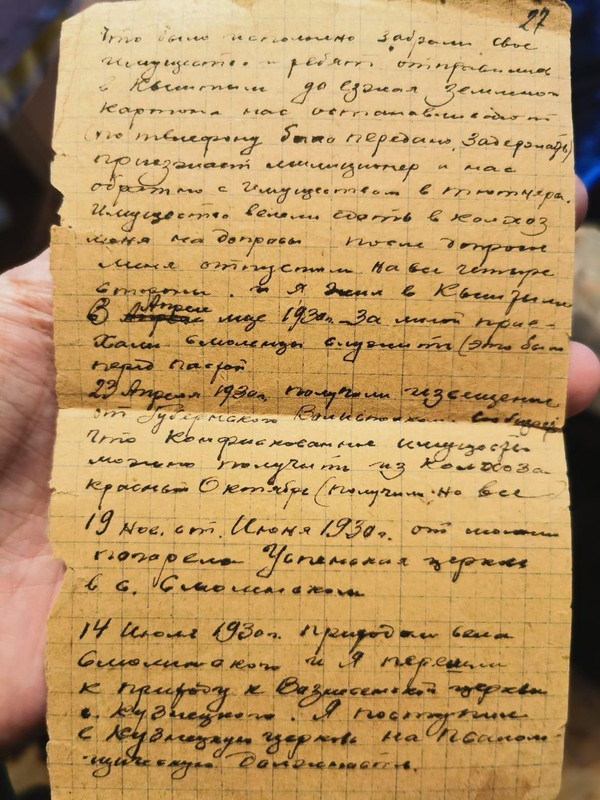 27
что было исполнено забрали свое
имущество и ребят отправились
в Кыштым до езжая земли
кордона нас останавливают
(по телефону было передано, задержать)
приезжает милиционер и нас
обратно с имуществом в тютнеры.
Имущество велели сдать в колхоз
меня на допросы после допроса
меня отпустили на все четыре
стороны. и я жил в Кыштыме
В Апреле м-це 1930г. За мной прие-
хали смоленцы служить (это было
перед пасхой
23 Апреля 1930г. получили извещение
от Губернского
что Конфискованное имущество
можно получить из Колхоза
красный Октябрь (получили но все
19 нов. ст. Июня 1930г. от молнии
погорела Успенская церковь
в с. Смолинском
14 Июля 1930г. приходом села
Смолинского и Я перешли
к приходу к Вознесенской церкви
с. Кузнецкого. Я поступил
в Кузнецкую церковь на псалом-
щическую должность.